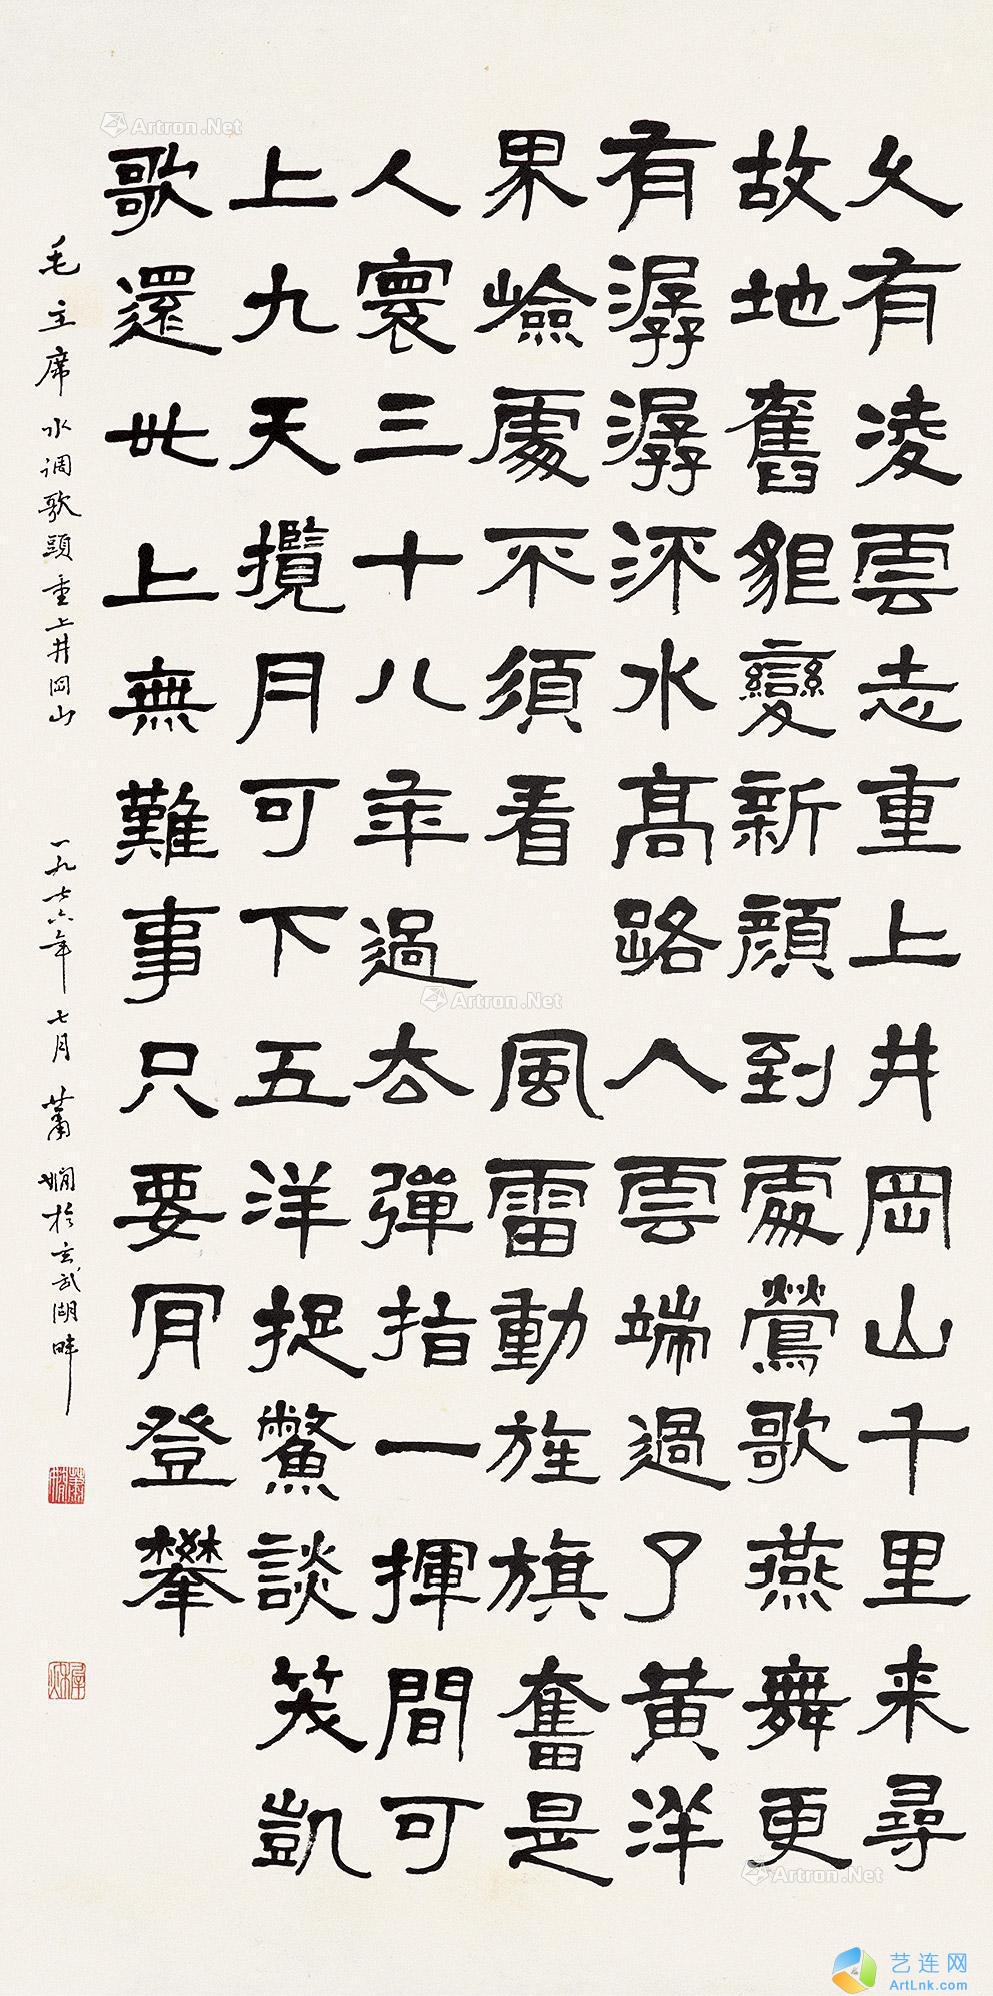 久有凌雲志重上井岡山千里来尋
故地舊貌變新顔到處鶯歌燕舞更
有潺潺流水高路入雲端過了黄洋
界嶮處不須看 風雷動旌旗奮是
人寰三十八年過去彈指一揮間可
上九天攬月可下五洋捉鱉談笑凱
歌還世上無難事只要肯登攀
毛主席水调歌頭重上井岡山 一九七六年七月蕭嫻於玄武湖畔
蕭嫻
Artron.Net
Artron.Net
Artron.Net
艺连网
ArtLnk.com